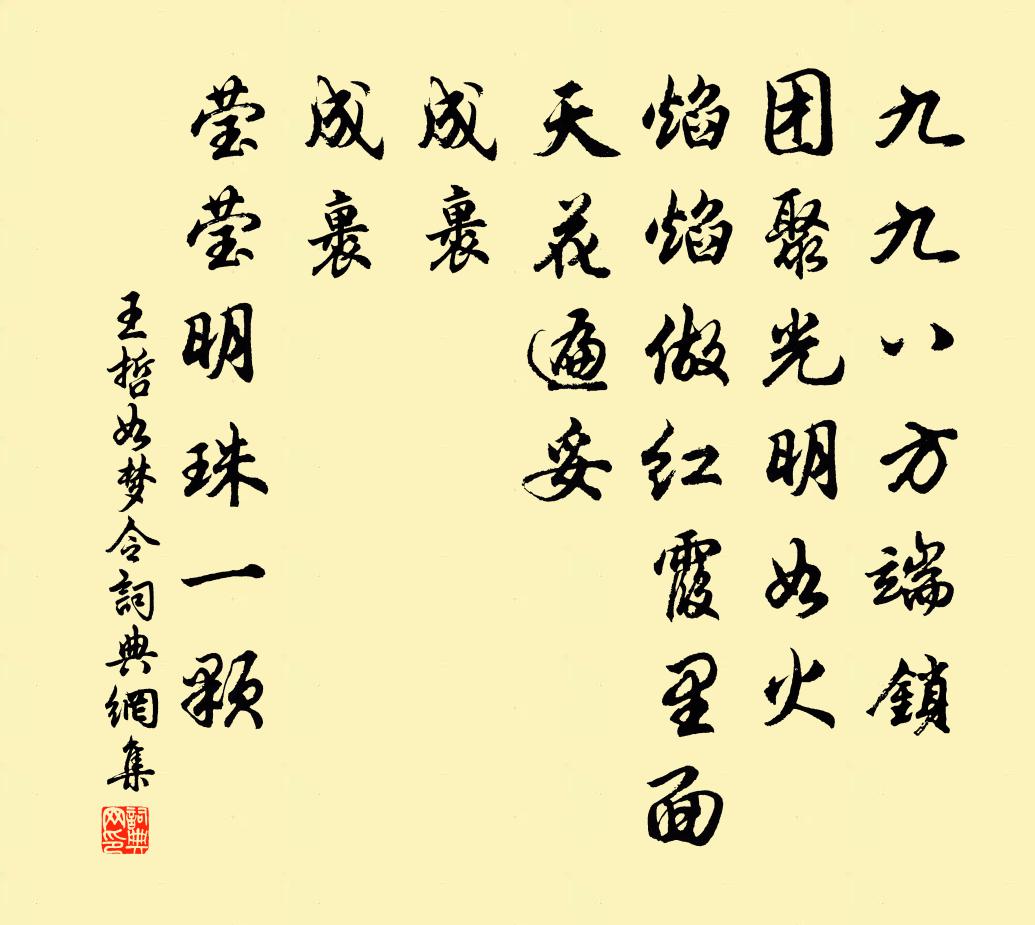 九九八方端鎖
团聚光明如火
焰焰做红霞里面
天花遍妥
成裹
成裹
莹莹明珠一颗
王哲如梦令詞典網集
詞典网印